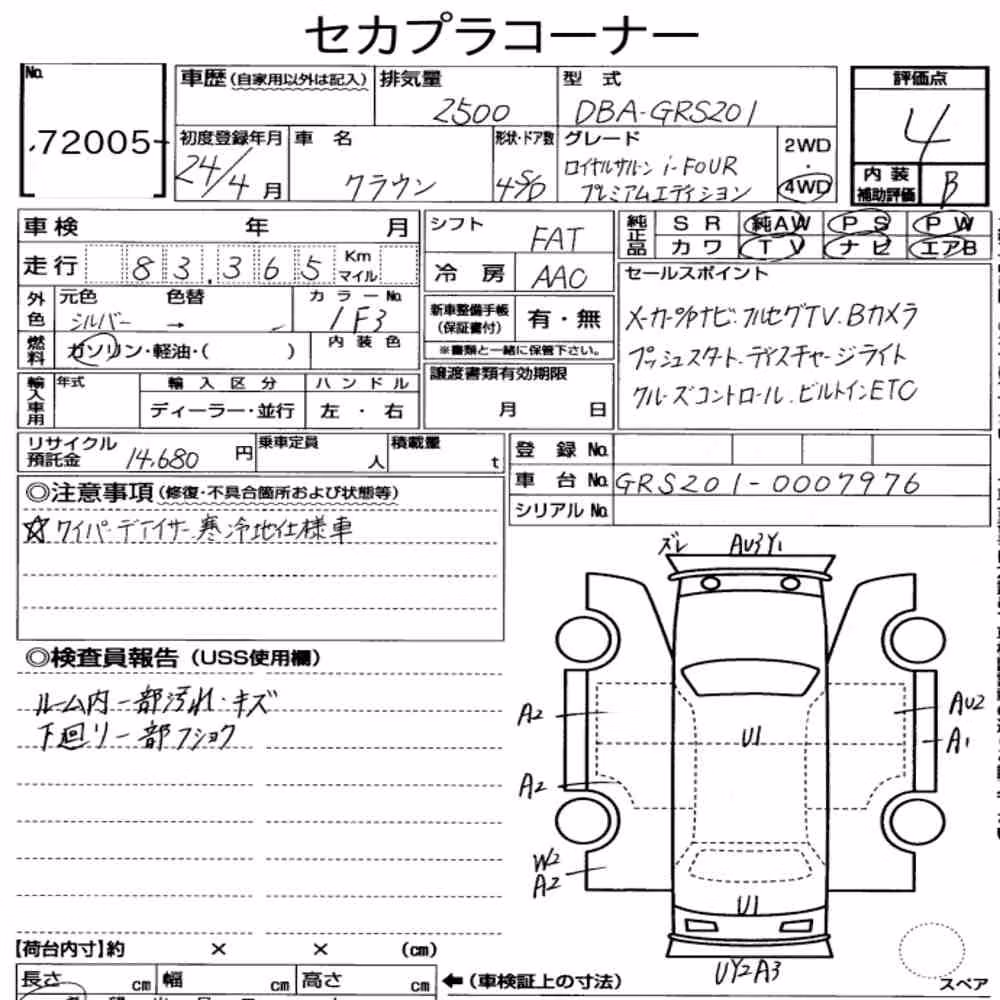 セカプラコーナー
No.
72005
車歴(自家用以外は記入)
排気量
2500
型 式
DBA-GRS201
評価点
4
初度登録年月
24/4月
車 名
クラウン
形状・ドア数
4S/D
グレード
ロイヤルサルーン i-FOUR
プレミアムエディション
2WD
・
4WD
内装
補助評価
B
車検 年 月
走行 83,365 Km マイル
シフト
FAT
冷 房
AAC
純正品
SR 純AW PS PW
カワ TV ナビ エアB
外色
元色 色替
シルバー →
カラーNo.
1F3
燃料
ガソリン・軽油・( )
内装色
新車整備手帳
(保証書付)
有・無
※書類と一緒に保管下さい。
セールスポイント
メーカーOPナビ.フルセグTV.Bカメラ
プッシュスタート.ディスチャージライト
クルーズコントロール.ビルトインETC
輸入車用
年式
輸入区分
ディーラー・並行
ハンドル
左・右
譲渡書類有効期限
月 日
リサイクル
預託金
14,680円
乗車定員
人
積載量
t
登 録 No.
車 台 No.
GRS201-0007976
シリアル No.
◎注意事項(修復・不具合箇所および状態等)
☆ワイパーデアイサー.寒冷地仕様車
◎検査員報告(USS使用欄)
ルーム内一部汚れ・キズ
下廻り一部フショク
ズレ
AU3Y1
A2
AU2
A1
U1
A2
W2
A2
U1
UY2A3
【荷台内寸】約 × × (cm)
長さ cm
幅 cm
高さ cm
←(車検証上の寸法)
スペア